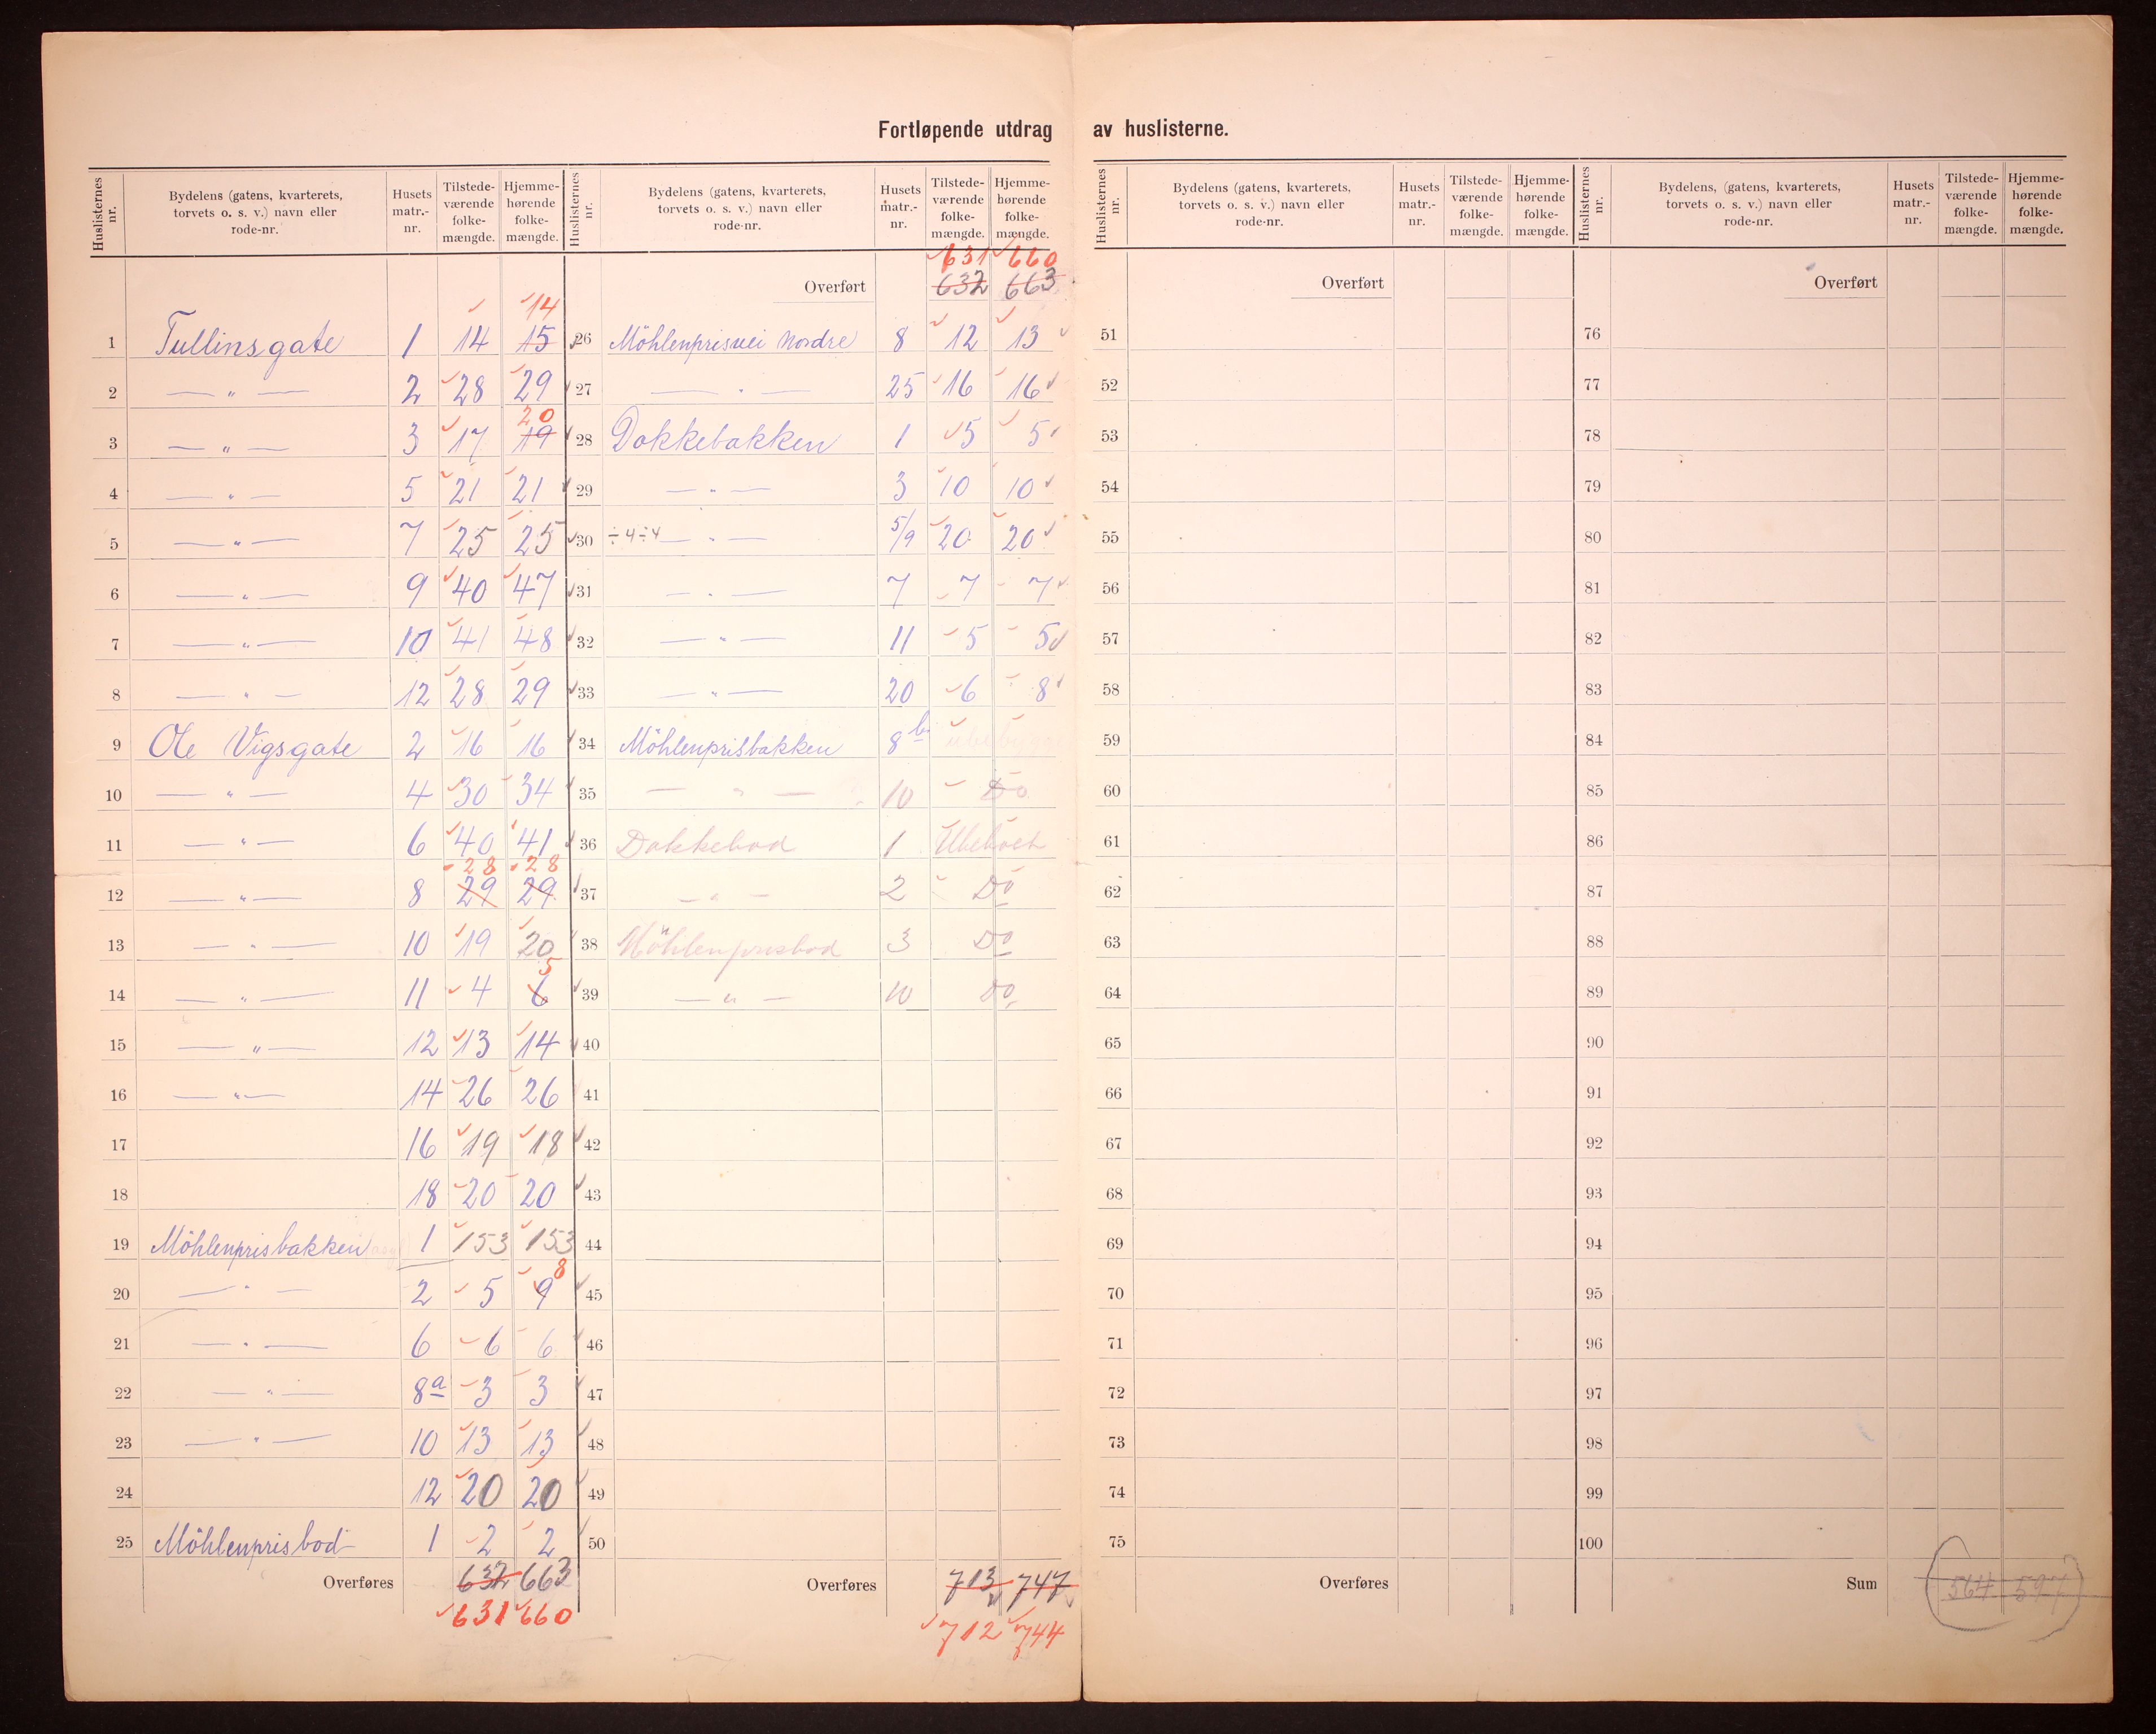 Fortløpende utdrag av huslisterne.
Huslisternes nr. | Bydelens (gatens, kvarterets, torvets o. s. v.) navn eller rode-nr. | Husets matr.-nr. | Tilstede-værende folke-mængde. | Hjemme-hørende folke-mængde.
14
1 Tullinsgate 1 14 15
2 — " — 2 28 29
20
3 — " — 3 17 19
4 — " — 5 21 21
5 — " — 7 25 25
6 — " — 9 40 47
7 — " — 10 41 48
8 — " — 12 28 29
9 Ole Vigsgate 2 16 16
10 — " — 4 30 34
11 — " — 6 40 41
28 28
12 — " — 8 29 29
13 — " — 10 19 20
5
14 — " — 11 4 6
15 — " — 12 13 14
16 — " — 14 26 26
17 16 19 18
18 18 20 20
19 Möhlenprisbakken 1 153 153
8
20 — " — 2 5 9
21 — " — 6 6 6
22 — " — 8a 3 3
23 — " — 10 13 13
24 12 20 20
25 Möhlenprisbod 1 2 2
Overføres 632 663
631 660
Huslisternes nr. | Bydelens (gatens, kvarterets, torvets o. s. v.) navn eller rode-nr. | Husets matr.-nr. | Tilstede-værende folke-mængde. | Hjemme-hørende folke-mængde.
631 660
Overført 632 663
26 Möhlenprisvei Nordre 8 12 13
27 — " — 25 16 16
28 Dokkebakken 1 5 5
29 — " — 3 10 10
30 ÷4÷4 — " — 5/9 20 20
31 — " — 7 7 7
32 — " — 11 5 5
33 — " — 20 6 8
34 Möhlenprisbakken 8b
35 — " — 10 Do
36 Dokkebod 1 Ubeboet
37 — " — 2 Do
38 Möhlenprisbod 3 Do
39 — " — 10 Do
40
41
42
43
44
45
46
47
48
49
50
Overføres 713 747
712 744
Huslisternes nr. | Bydelens (gatens, kvarterets, torvets o. s. v.) navn eller rode-nr. | Husets matr.-nr. | Tilstede-værende folke-mængde. | Hjemme-hørende folke-mængde.
Overført
51
52
53
54
55
56
57
58
59
60
61
62
63
64
65
66
67
68
69
70
71
72
73
74
75
Overføres
Huslisternes nr. | Bydelens, (gatens, kvarterets, torvets o. s. v.) navn eller rode-nr. | Husets matr.-nr. | Tilstede-værende folke-mængde. | Hjemme-hørende folke-mængde.
Overført
76
77
78
79
80
81
82
83
84
85
86
87
88
89
90
91
92
93
94
95
96
97
98
99
100
Sum 564 597